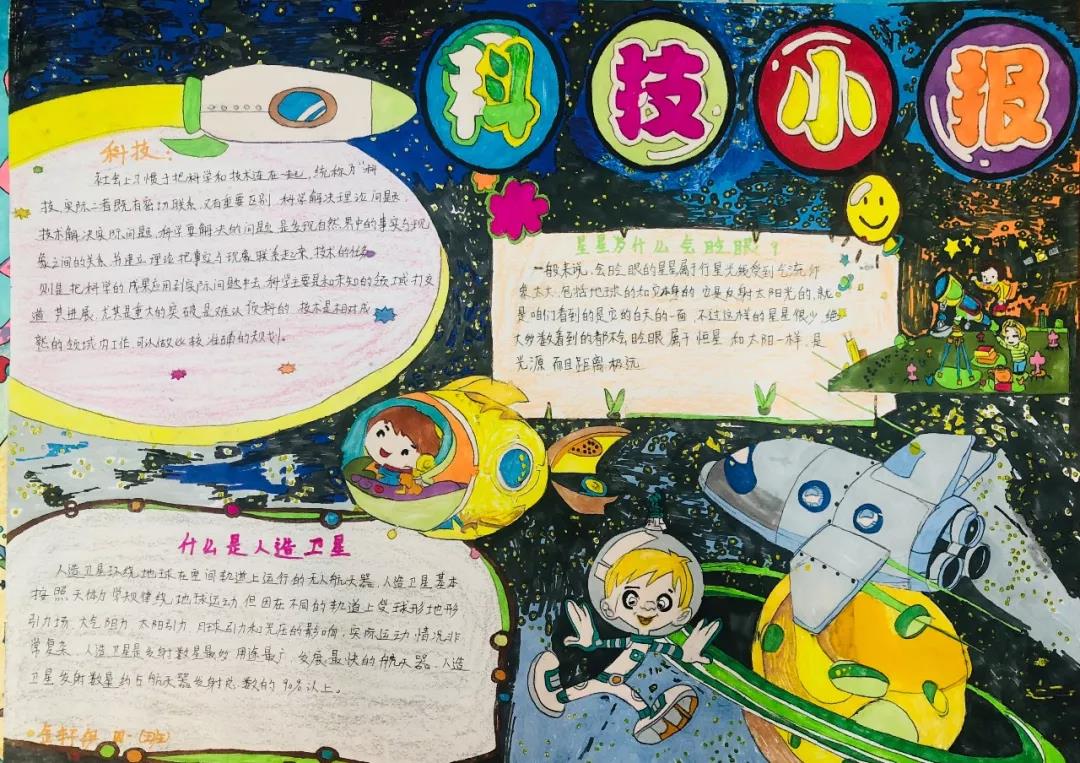 科技小报
科技：
社会上习惯于把科学和技术连在一起，统称为“科
技，实际二者既有密切联系，又有重要区别，科学解决理论问题，
技术解决实际问题，科学要解决的问题，是发现自然界中的事实与现
象之间的关系，并建立理论把事实与现象联系起来，技术的任务
则是把科学的成果应用到实际问题中去，科学主要是和未知的领域打交
道，其进展，尤其是重大的突破，是难以预料的，技术是在相对成
熟的领域内工作，可以做比较准确的规划。
星星为什么会眨眼？
一般来说，会眨眼的星星属于行星光线受到气流
大，包括地球的 它是反射太阳光的，就
是咱们看到的是它的白天的一面，不过这样的星星很少，绝
大多数看到的都不会眨眼属于恒星，和太阳一样，是
光源，而且距离极远
什么是人造卫星
人造卫星环绕地球在空间轨道上运行的无人航天器，人造卫星基本
按照天体力学规律绕地球运动，但因在不同的轨道上受球形地形
引力场，大气阻力，太阳引力，月球引力和光压的影响，实际运动情况非
常复杂，人造卫星是发射数量最多，用途最广，发展最快的航天器，人造
卫星发射数量约占航天器发射总数的90%以上。